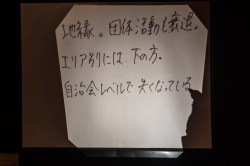 地縁。団体活動も衰退。
エリア別には 下の方。
自治会レベルで 失くなっている